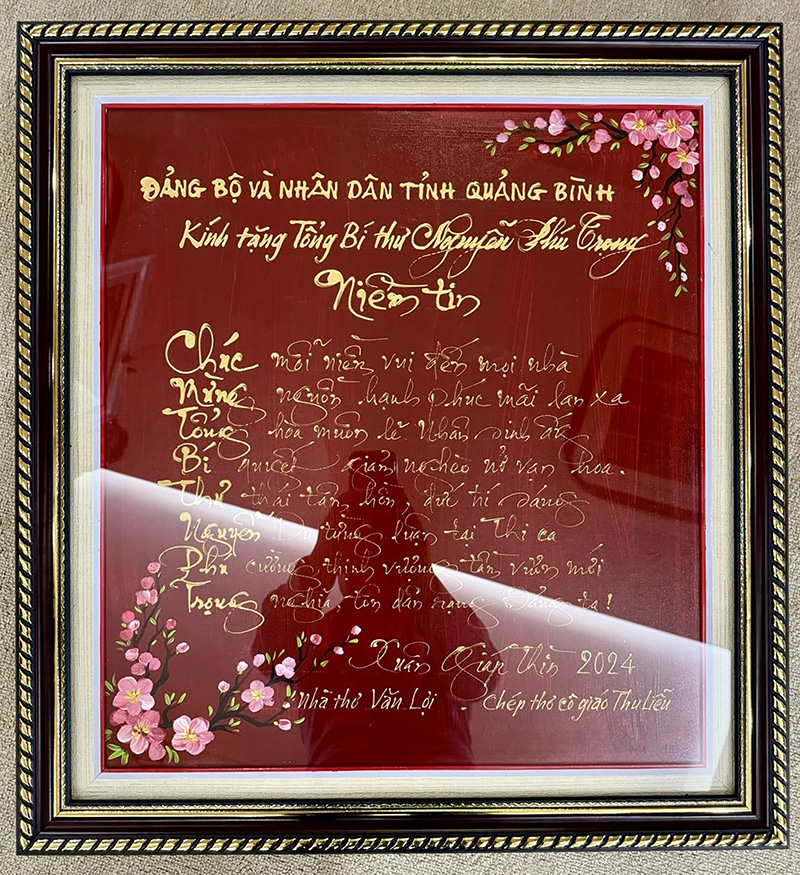 ĐẢNG BỘ VÀ NHÂN DÂN TỈNH QUẢNG BÌNH
Kính tặng Tổng Bí thư Nguyễn Phú Trọng
Niềm tin
Chúc mỗi niềm vui đến mọi nhà
Mừng nguồn hạnh phúc mãi lan xa
Tổng hòa muôn lẽ nhân sinh ấy
Bí quyết giản nghèo nở vạn hoa.
Thư thái tâm hồn đức trí sáng
Nguyễn Du từng luận tại Thi ca
Phú cường, thịnh vượng, tầm vươn mới
Trọng nghĩa, tin dân trọng Đảng ta!
Xuân Giáp Thìn 2024
Nhà thơ Văn Lợi - Chép thơ cô giáo Thu Liễu